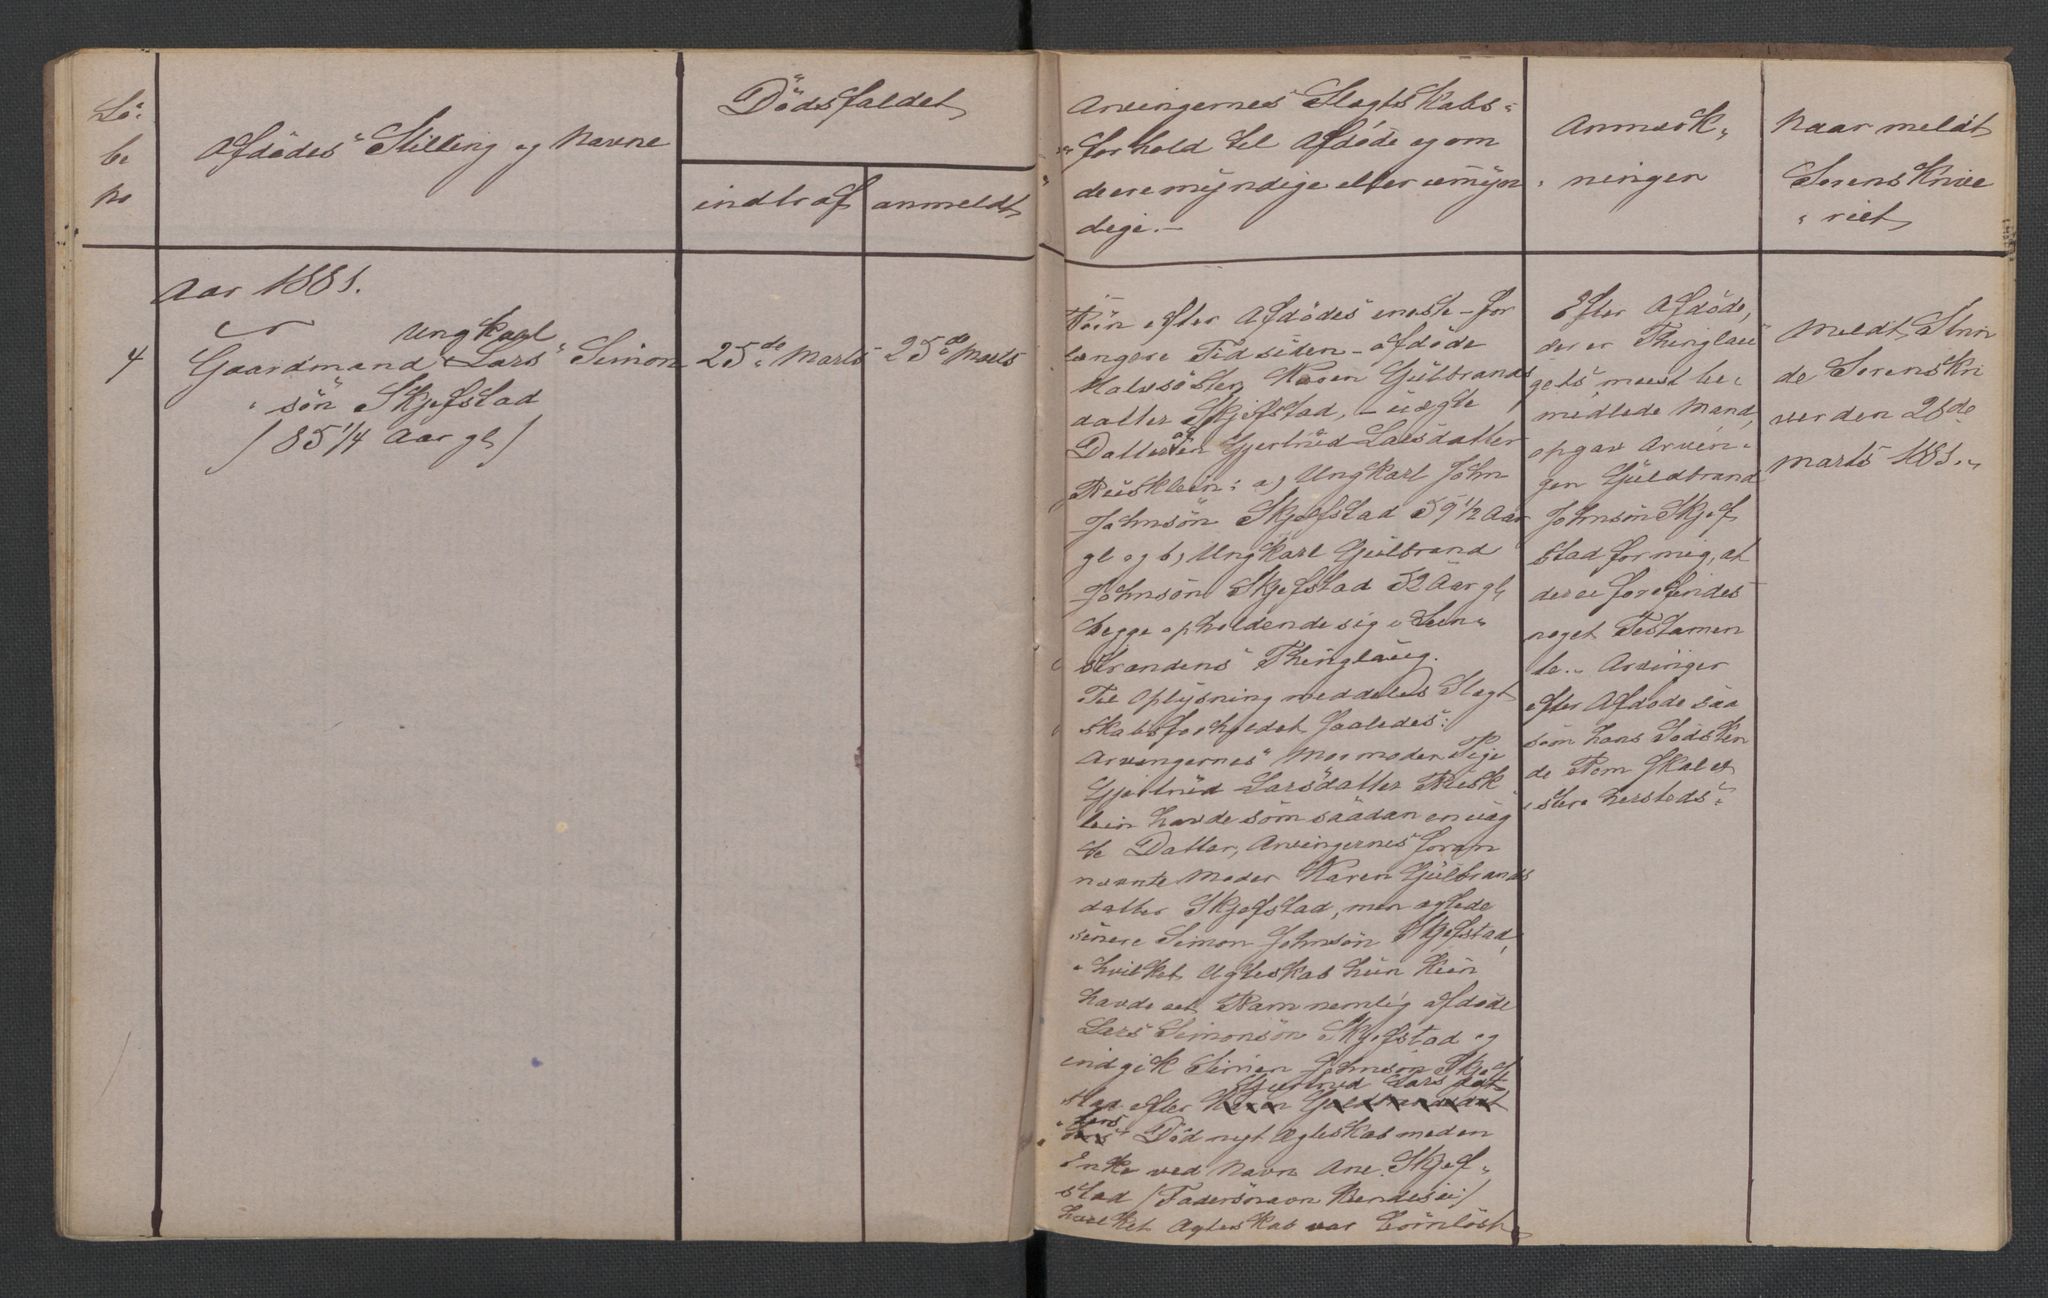 Lö-
be
No
Afdödes Stilling og Navne
Dödsfaldet
indtraf
anmeldt
Arvingernes Slægtskabs-
forhold til Afdöde og om
de ere myndige eller umyn
dige.
Anmærk-
ninger
Naar meldt
Sorenskrive
riet
Aar 1881.
4
Ungkarl
Gaardmand Lars Simon
sön Skjefstad
/85 1/4 Aar gl/
25de Marts
25de Marts
efter Afdödes eneste for
længere Tid siden afdöde
Halvsöster, Karen Gulbrands
datter Skjefstad, uægte
Datter af Gjertrud Larsdatter
Ruisklein: a, Ungkarl John
Johnsön Skjefstad 59 1/2 Aar
gl og b, Ungkarl Gulbrand
Johnsön Skjefstad 52 Aar gl
begge opholdende sig i Lein-
strandens Thinglaug.
Til Oplysning meddeles Slægt
skabsforholdet saaledes:
Arvingernes Mormoder Pige
Gjertrud Larsdatter Ruisk
lein havde som saadan en uæg
te Datter, Arvingernes foran
nævnte Moder Karen Gulbrands
datter Skjefstad, men ægtede
senere Simon Johnsön Skjefstad,
i hvilket Ægteskab hun kun
havde et Barn nemlig afdöde
Lars Simonsön Skjefstad og
indgik Simon Johnsön Skjef
Gjertrud Larsdat
stad efter Karen Guldbrandsdat
ters
ters Död nyt Ægteskab med en
Enke ved Navn Ane Skjef-
stad /Fadersnavn kjendes ei/
hvilket Ægteskab var barnlöst
Efter Afdöde,
der er Thinglau
gets meest be-
midlede Mand,
opgav Arvin-
gen Guldbrand
Johnsön Skjef
stad for mig, at
der ei forefindes
noget Testamen
te. Arvinger
efter Afdöde saa
som hans Söds ken
de Börn skal ex
istere hersteds
Meldt Strin
de Sorenskri
ver den 28de
Marts 1881.